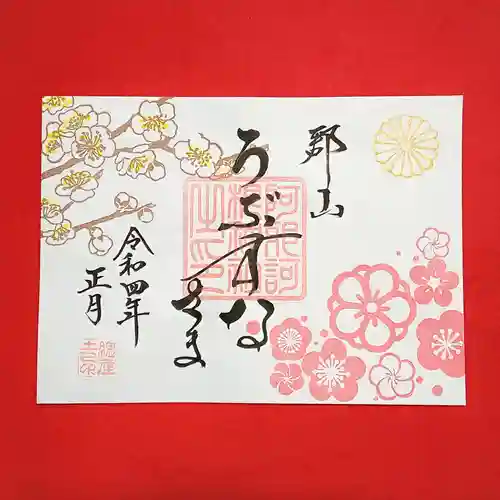 郡山
うぶすな
さま
令和四年
正月